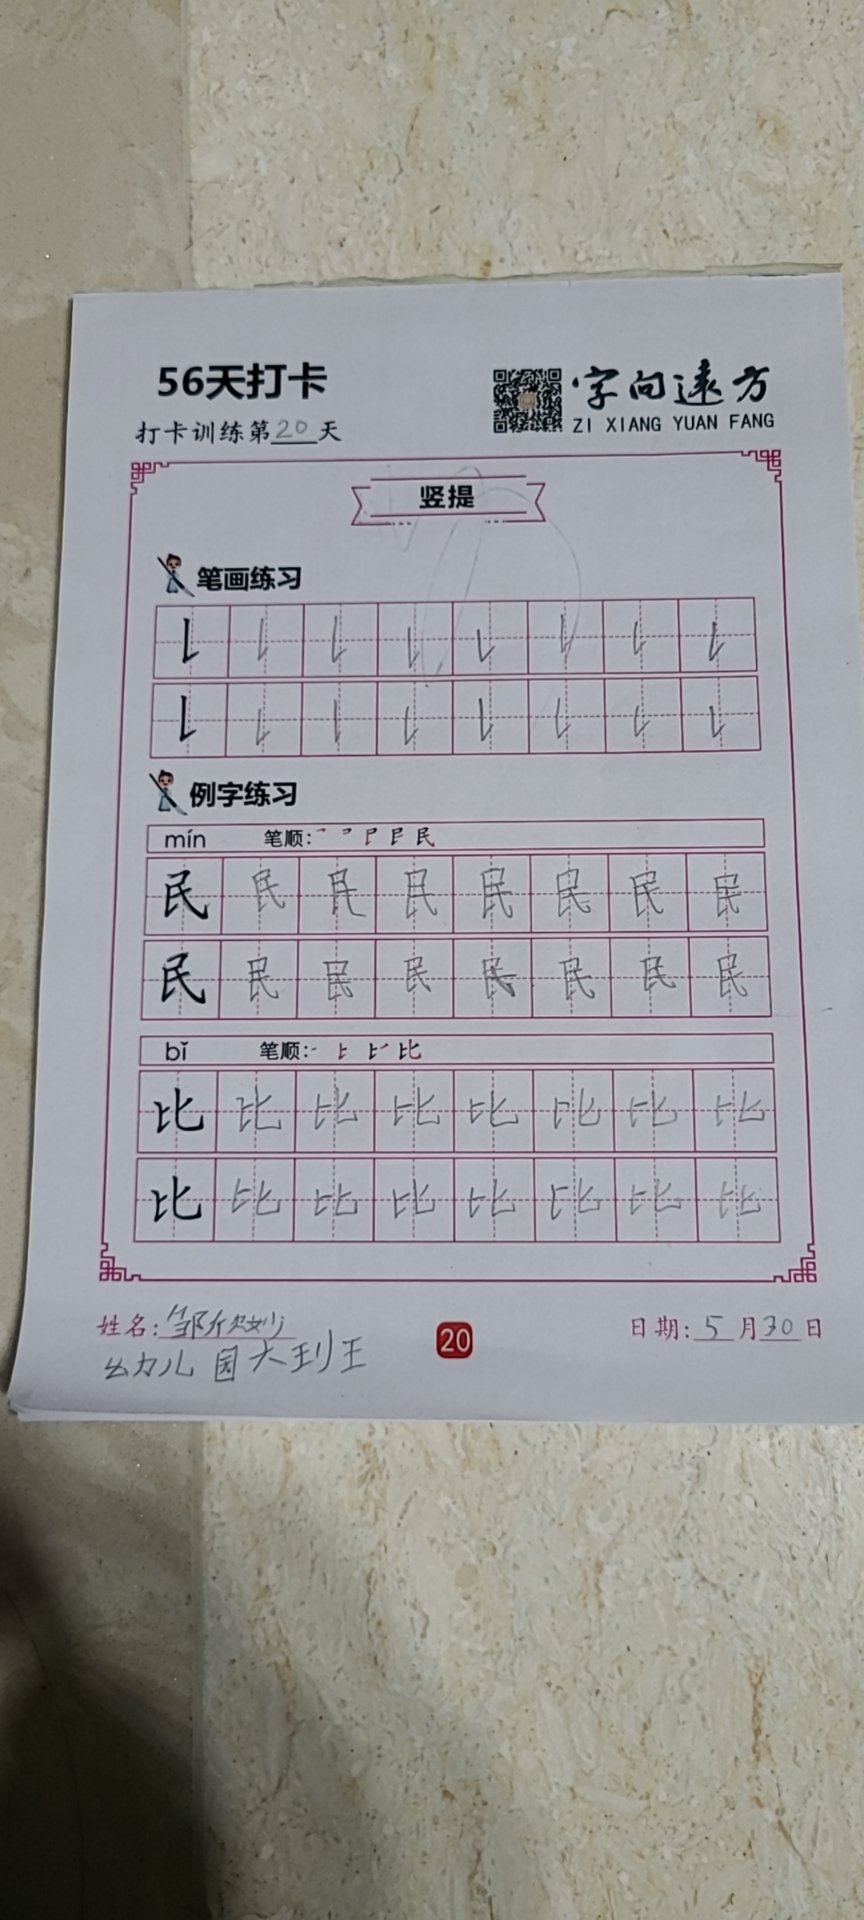 56天打卡
字向远方
打卡训练第20天
ZI XIANG YUAN FANG
竖提
笔画练习
例字练习
mín 笔顺:
民 民 民 民 民 民 民 民
民 民 民 民 民 民 民 民
bǐ 笔顺:
比 比 比 比 比 比 比 比
比 比 比 比 比 比 比 比
姓名:
20
日期:5月30日
幼儿园大班